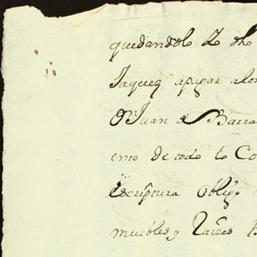 quedandole
Jaquez apagar alos
Juan de Barra
de todo lo Co
Escriptura oblig
muebles y Raices